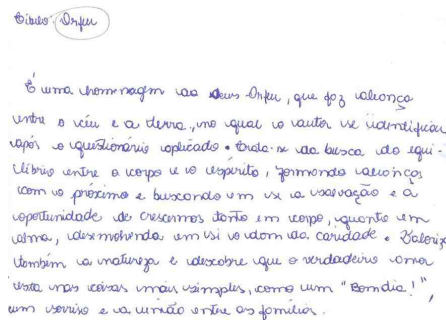 Título: Orfeu
É uma homenagem ao deus Orfeu, que faz aliança
entre o céu e a terra, no qual o autor se identificou
após o questionário aplicado. Trata-se da busca do equi-
líbrio entre o corpo e o espírito, formando alianças
com o próximo e buscando em si a salvação e a
oportunidade de crescermos tanto em corpo, quanto em
alma, desenvolvendo em si o dom da caridade. Valoriza
também a natureza e descobre que o verdadeiro amor
esta nas coisas mais simples, como um "Bom dia!",
um sorriso e a união entre as famílias.